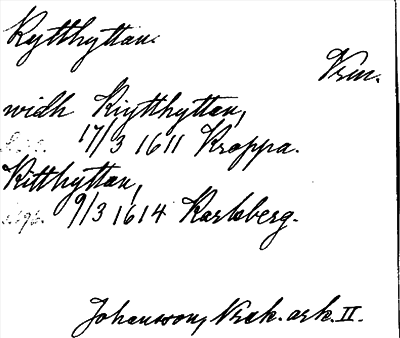 Rytthyttan.
Vrm.
widh Kiytthyttan,
17/3 1611 Kroppa.
Kitthyttan,
9/3 1614 Karlsberg.
Johansson, Norak. ark. II.